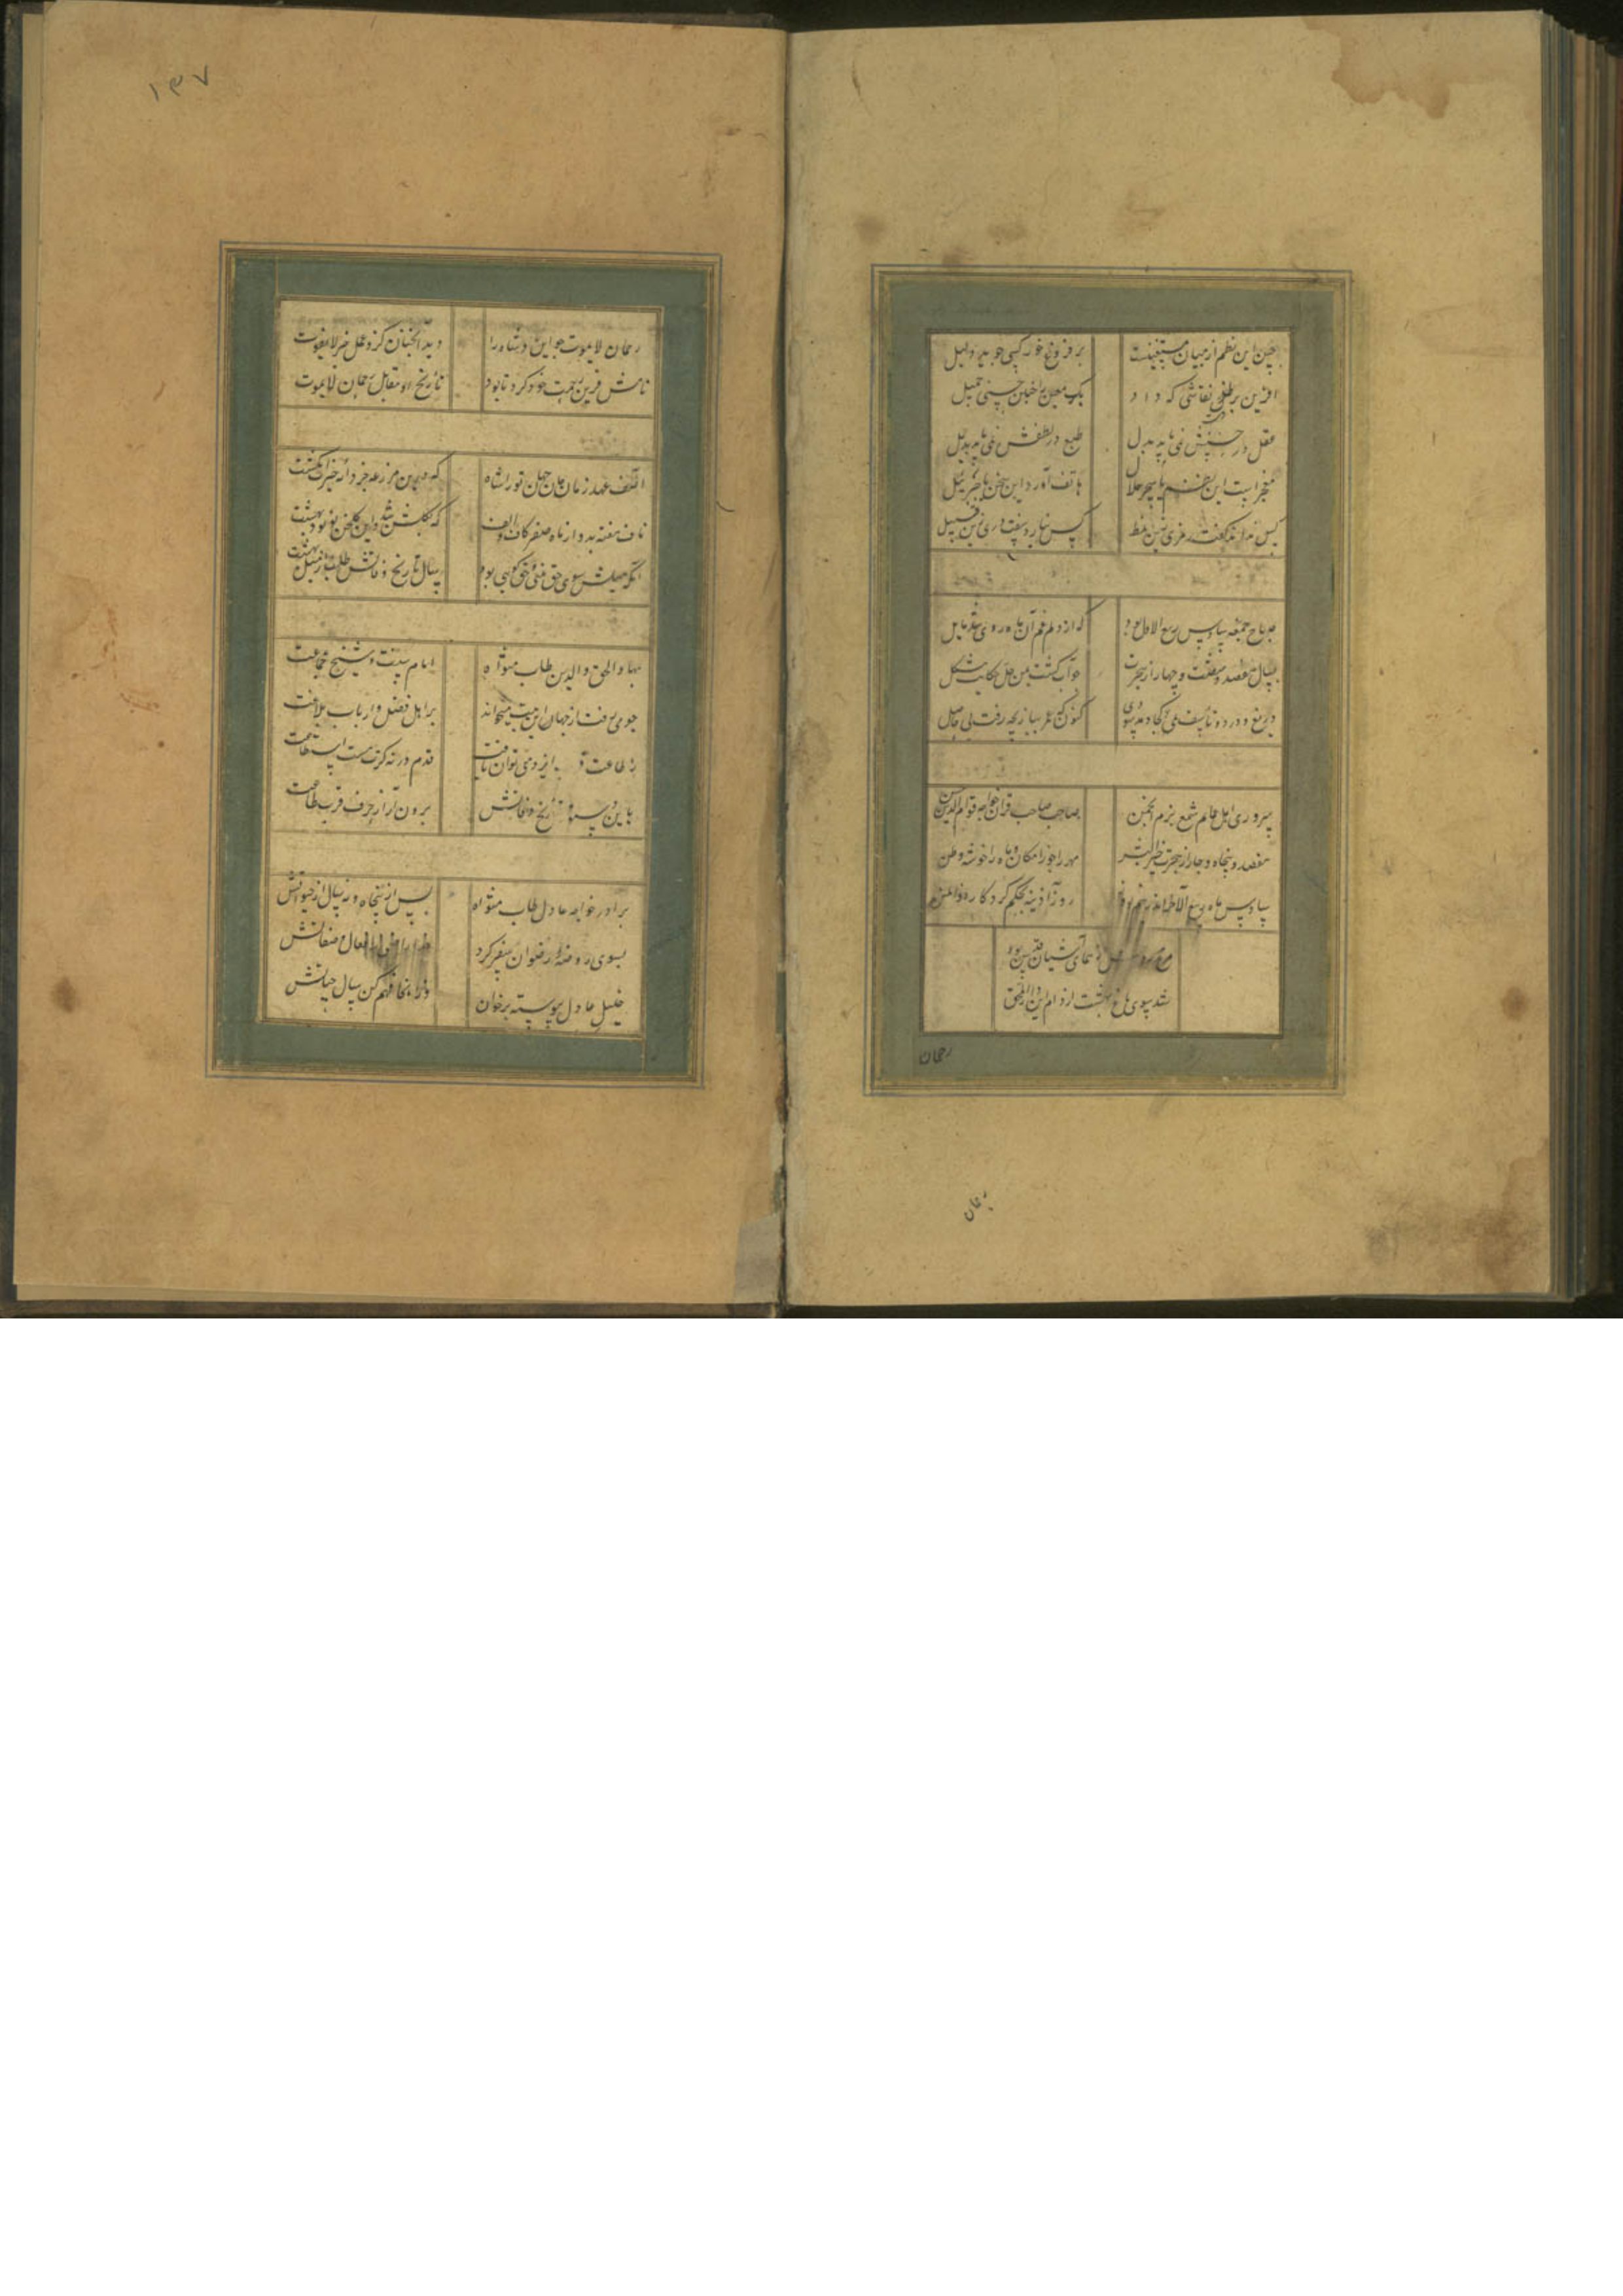 حسن این نظم از بیان مستغنیست
بر فروغ خور کسی جوید دلیل
آفرین بر کلک نقاشی که داد
بکر معنی را چنین حسنی جمیل
عقل در حسنش نمی یابد بدل
طبع در لطفش نمی یابد بدیل
معجز است این نظم یا سحر حلال
هاتف آورد این سخن یا جبرئیل
کس نداند گفت رمزی زین نمط
کس نیارد سفت دری زین قبیل
صباح جمعه بد و سادس ربیع الاول بود
که از دلم غم آن ماه روی شد مایل
بسال هفصد و شصت و چهار از هجرت
جو آب کشت بمن حل حکایت مشکل
دریغ و درد و تاسف کجا دهد سودی
کنون که عمر ببازیچه رفت بی حاصل
سرور اهل عمایم شمع بزم انجمن
صاحب صاحب قران خواجه قوام الدین حسن
هفصد و پنجاه و چار از هجرت خیر البشر
مهر را جوزا مکان و ماه را خوشه وطن
سادس ماه ربیع الاخر اندر نیم روز
روز آذینه بحکم کردکار ذوالمنن
مرغ روحش کو همای آشیان قدس بود
شد سوی باغ بهشت از دام این دار المحن
رحمان
رحمان
۱۳۷
رحمان لا یموت جو این دشاه را
دید آنجنان کزو عمل خیر لا یفوت
جانش قرین رحمت خود کرد تا بود
تاریخ او مقابل رحمان لا یموت
آصف عهد زمان جان جهان تورانشاه
که درین مزرعه جز دانه خیرات نکشت
ناف هفته بد و از ماه صفر کاف و الف
که بگلشن شد و این گلخن پر دود بهشت
آنکه میلش سوی حق بینی و حق گویی بود
سال تاریخ وفاتش طلب از میل بهشت
بهاء الحق و الدین طاب مثواه
امام سنت و شیخ جماعت
جو می رفت از جهان این بیت میخواند
بر اهل فضل و ارباب بلاغت
بطاعت قرب ایزد می توان یافت
قدم در نه کرت هست استطاعت
باین دستور تاریخ وفاتش
برون آر از حروف قرب طاعت
برادر خواجه عادل طاب مثواه
پس از پنجاه و نه سال از حیاتش
بسوی روضه رضوان سفر کرد
خدا راضی ز افعال و صفاتش
خلیل عادل پیوسته برخوان
وز انجا فهم کن سال حیاتش